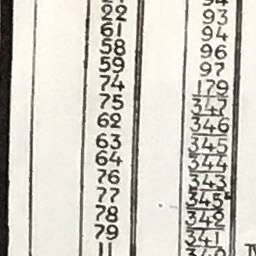 22 93
61 94
58 96
59 97
74 179
75 347
62 346
63 345
64 344
76 343
77 345
78 342
79 341